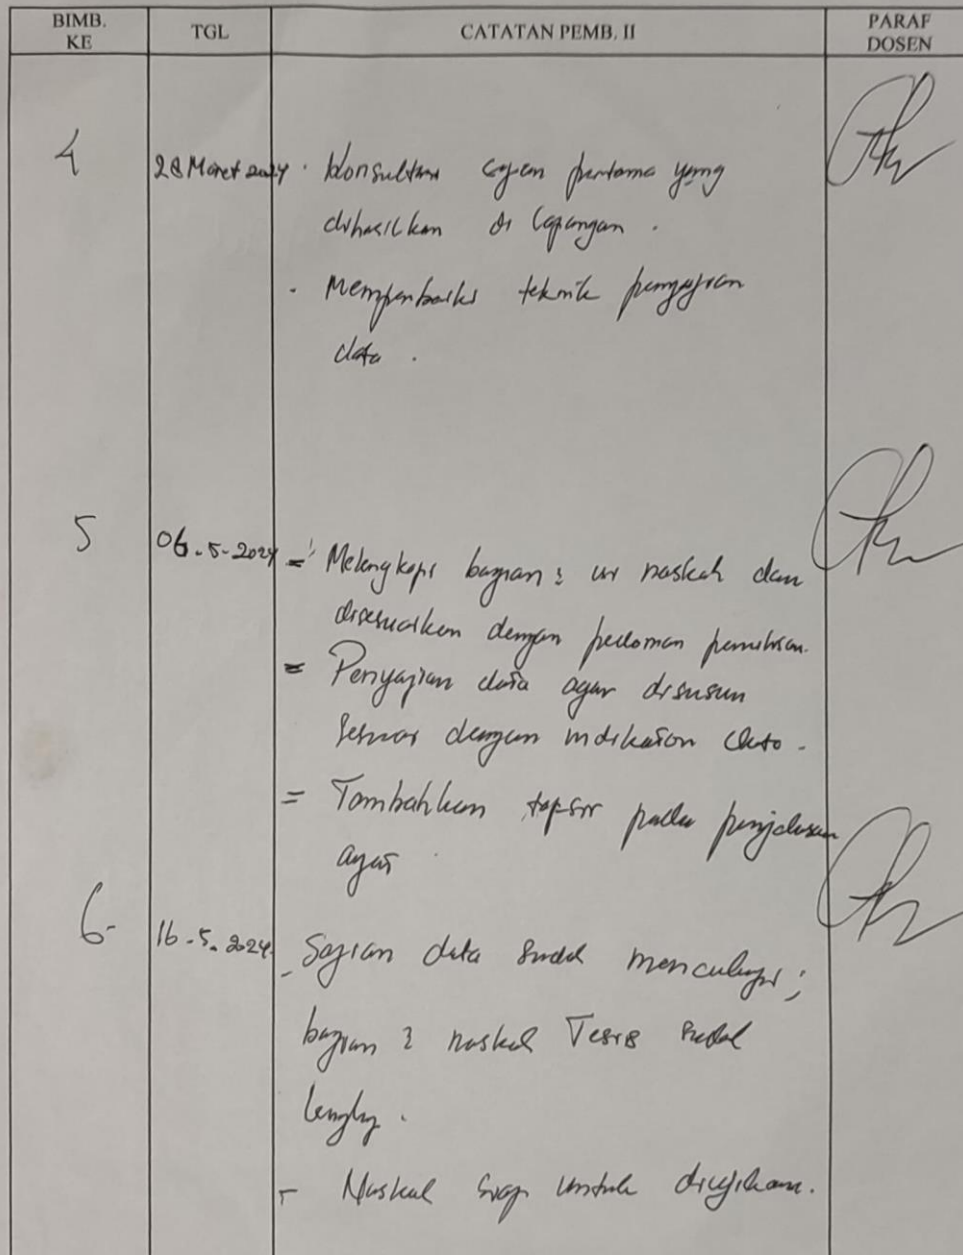 BIMB. KE
TGL
CATATAN PEMB. II
PARAF DOSEN
4
28 Maret 2024
· Konsultasi sajian pertama yang
dihasilkan di lapangan.
· Memperbaiki teknik penyajian
data.
5
06-5-2024
= Melengkapi bagian2 isi naskah dan
disesuaikan dengan pedoman penulisan.
= Penyajian data agar disusun
sesuai dengan indikator data.
= Tambahkan tafsir pada penjelasan
ayat
6-
16.5.2024
- Sajian data sudah mencukupi;
bagian2 naskah Tesis sudah
lengkap.
- Naskah siap untuk diujikan.